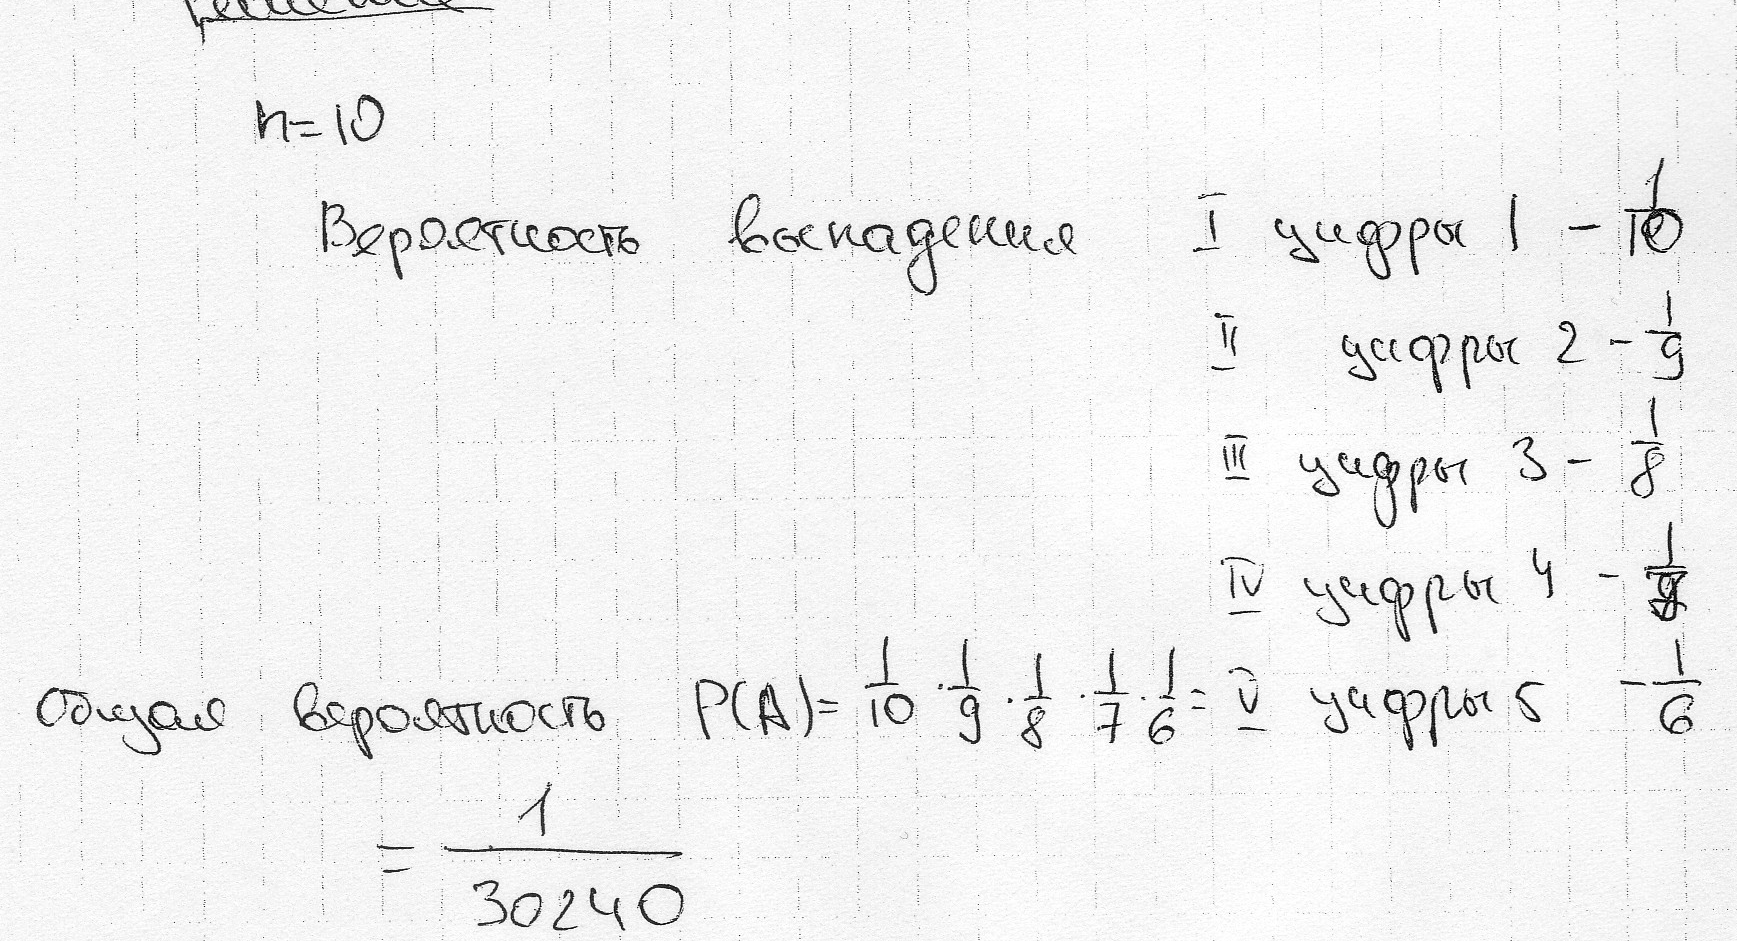 Решение
n=10
Вероятность выпадения I цифры 1 - 1/10
II цифры 2 - 1/9
III цифры 3 - 1/8
IV цифры 4 -
V цифры 5 - 1/6
Общая вероятность P(A)= 1/10 · 1/9 · 1/8 · 1/7 · 1/6 =
= 1/30240